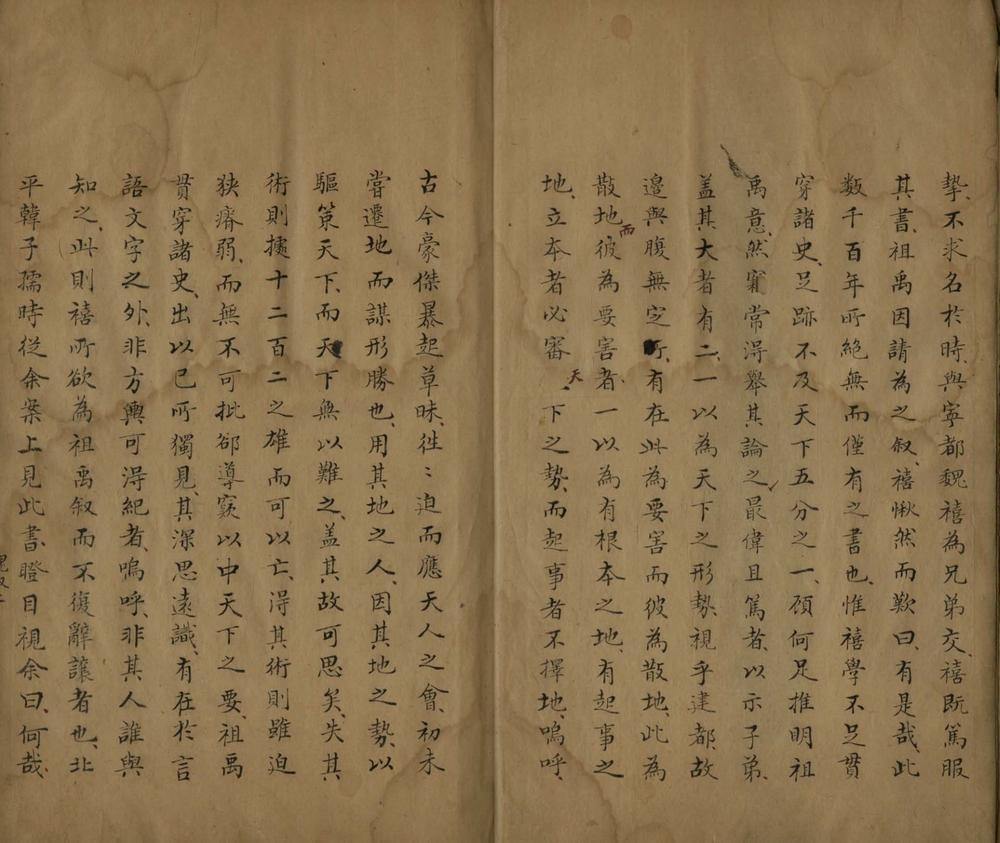 摯、不求名於時、與寧都魏禧為兄弟交、禧既篤服
其書、祖禹因請為之叙、禧愀然而歎曰、有是哉、此
数千百年所絶無而僅有之書也、惟禧學不足貫
穿諸史、足跡不及天下五分之一、頋何足推明祖
禹意、然窮常淂舉其論之最偉且篤者、以示子弟、
葢其大者有二、一以為天下之形勢、視乎建都、故
邉與腹無定所、有在此為要害而彼為散地、此為
散地而彼為要害者、一以為有根本之地、有起事之
地、立本者必審天下之勢、而起事者不擇地、嗚呼、
古今豪傑暴起草昧、徃〻迫而應天人之會、初未
嘗遷地而謀形勝也、用其地之人、因其地之勢、以
驅策天下、而天下無以難之、盖其故可思矣、失其
術則據十二百二之雄而可以亡、淂其術則雖迫
狭瘠弱、而無不可批郤導窽以中天下之要、祖禹
貫穿諸史、出以已所獨見、其深思遠識、有在於言
語文字之外、非方輿可淂紀者、嗚呼、非其人誰與
知之、此則禧所欲為祖禹叙而不復辭讓者也、北
平韓子孺時從余案上見此書、瞪目視余曰、何哉、